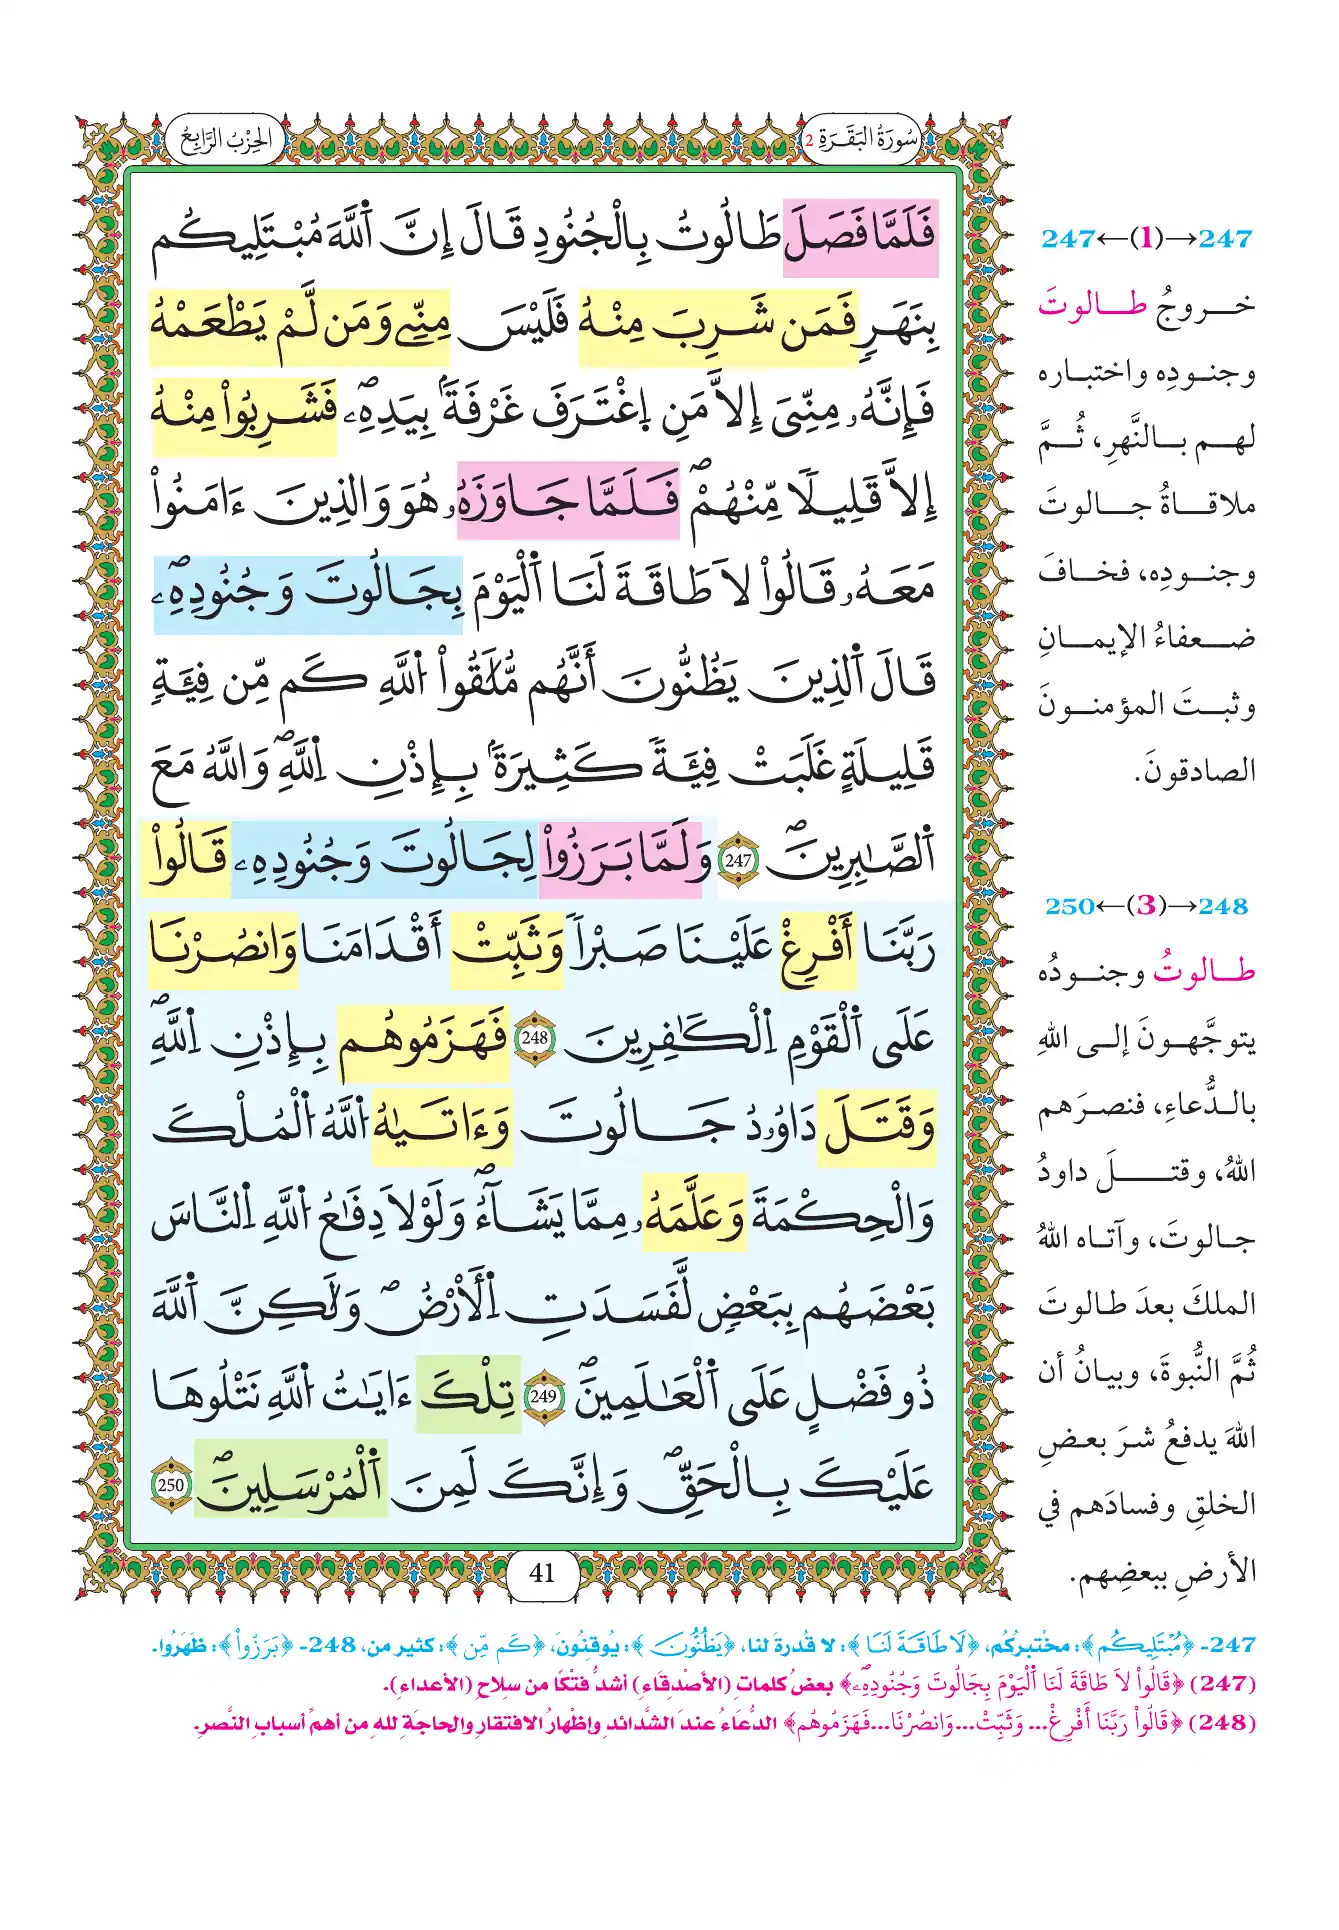 سُورَةُ البَقَرَةِ 2
الحِزْبُ الرَّابِعُ
فَلَمَّا فَصَلَ طَالُوتُ بِالْجُنُودِ قَالَ إِنَّ اَ۬للَّهَ مُبْتَلِيكُم
بِنَهَرٍ فَمَن شَرِبَ مِنْهُ فَلَيْسَ مِنِّے وَمَن لَّمْ يَطْعَمْهُ
فَإِنَّهُۥ مِنِّيَ إِلَّا مَنِ اِ۪غْتَرَفَ غَرْفَةَۢ بِيَدِهِۦۖ فَشَرِبُواْ مِنْهُ
إِلَّا قَلِيلًا مِّنْهُمْۖ فَلَمَّا جَاوَزَهُۥ هُوَ وَالذِينَ ءَامَنُواْ
مَعَهُۥ قَالُواْ لَا طَاقَةَ لَنَا اَ۬لْيَوْمَ بِجَالُوتَ وَجُنُودِهِۦۖ
قَالَ اَ۬لذِينَ يَظُنُّونَ أَنَّهُم مُّلَٰقُواْ اُ۬للَّهِ كَم مِّن فِئَةٍ
قَلِيلَةٍ غَلَبَتْ فِئَةً كَثِيرَةَۢ بِإِذْنِ اِ۬للَّهِۖ وَاللَّهُ مَعَ
اَ۬لصَّٰبِرِينَۖ 247 وَلَمَّا بَرَزُواْ لِجَالُوتَ وَجُنُودِهِۦ قَالُواْ
رَبَّنَا أَفْرِغْ عَلَيْنَا صَبْرًا وَثَبِّتْ أَقْدَامَنَا وَانصُرْنَا
عَلَى اَ۬لْقَوْمِ اِ۬لْكَٰفِرِينَ 248 فَهَزَمُوهُم بِإِذْنِ اِ۬للَّهِۖ
وَقَتَلَ دَاوُۥدُ جَالُوتَ وَءَاتَيٰهُ اُ۬للَّهُ اُ۬لْمُلْكَ
وَالْحِكْمَةَ وَعَلَّمَهُۥ مِمَّا يَشَآءُۖ وَلَوْلَا دِفَٰعُ اُ۬للَّهِ اِ۬لنَّاسَ
بَعْضَهُم بِبَعْضٍ لَّفَسَدَتِ اِ۬لْأَرْضُۖ وَلَٰكِنَّ اَ۬للَّهَ
ذُو فَضْلٍ عَلَى اَ۬لْعَٰلَمِينَۖ 249 تِلْكَ ءَايَٰتُ اُ۬للَّهِ نَتْلُوهَا
عَلَيْكَ بِالْحَقِّۖ وَإِنَّكَ لَمِنَ اَ۬لْمُرْسَلِينَۖ 250
41
247←(1)→247
خروجُ طالوتَ
وجنودِه واختباره
لهم بالنَّهرِ، ثُمَّ
ملاقاةُ جالوتَ
وجنودِه، فخافَ
ضعفاءُ الإيمانِ
وثبتَ المؤمنونَ
الصادقونَ.
250←(3)→248
طالوتُ وجنودُه
يتوجَّهونَ إلى اللهِ
بالدُّعاءِ، فنصرَهم
اللهُ، وقتلَ داودُ
جالوتَ، وآتاه اللهُ
الملكَ بعدَ طالوتَ
ثُمَّ النُّبوةَ، وبيانُ أن
اللهَ يدفعُ شرَ بعضِ
الخلقِ وفسادَهم في
الأرضِ ببعضِهم.
247- ﴿مُبْتَلِيكُم﴾: مختبرُكُم، ﴿لَا طَاقَةَ لَنَا﴾: لا قُدرةَ لنا، ﴿يَظُنُّونَ﴾: يُوقِنُونَ، ﴿كَم مِّن﴾: كثير من، 248- ﴿بَرَزُواْ﴾: ظَهَرُوا.
(247) ﴿قَالُواْ لَا طَاقَةَ لَنَا اَ۬لْيَوْمَ بِجَالُوتَ وَجُنُودِهِۦۖ﴾ بعضُ كلماتِ (الأصْدِقَاءِ) أشدُّ فتْكًا من سلاحِ (الأعداءِ).
(248) ﴿قَالُواْ رَبَّنَا أَفْرِغْ... وَثَبِّتْ... وَانصُرْنَا... فَهَزَمُوهُم﴾ الدُّعَاءُ عندَ الشَّدائدِ وإظهارُ الافتقارِ والحاجَةِ للهِ من أهمِّ أسبابِ النَّصرِ.